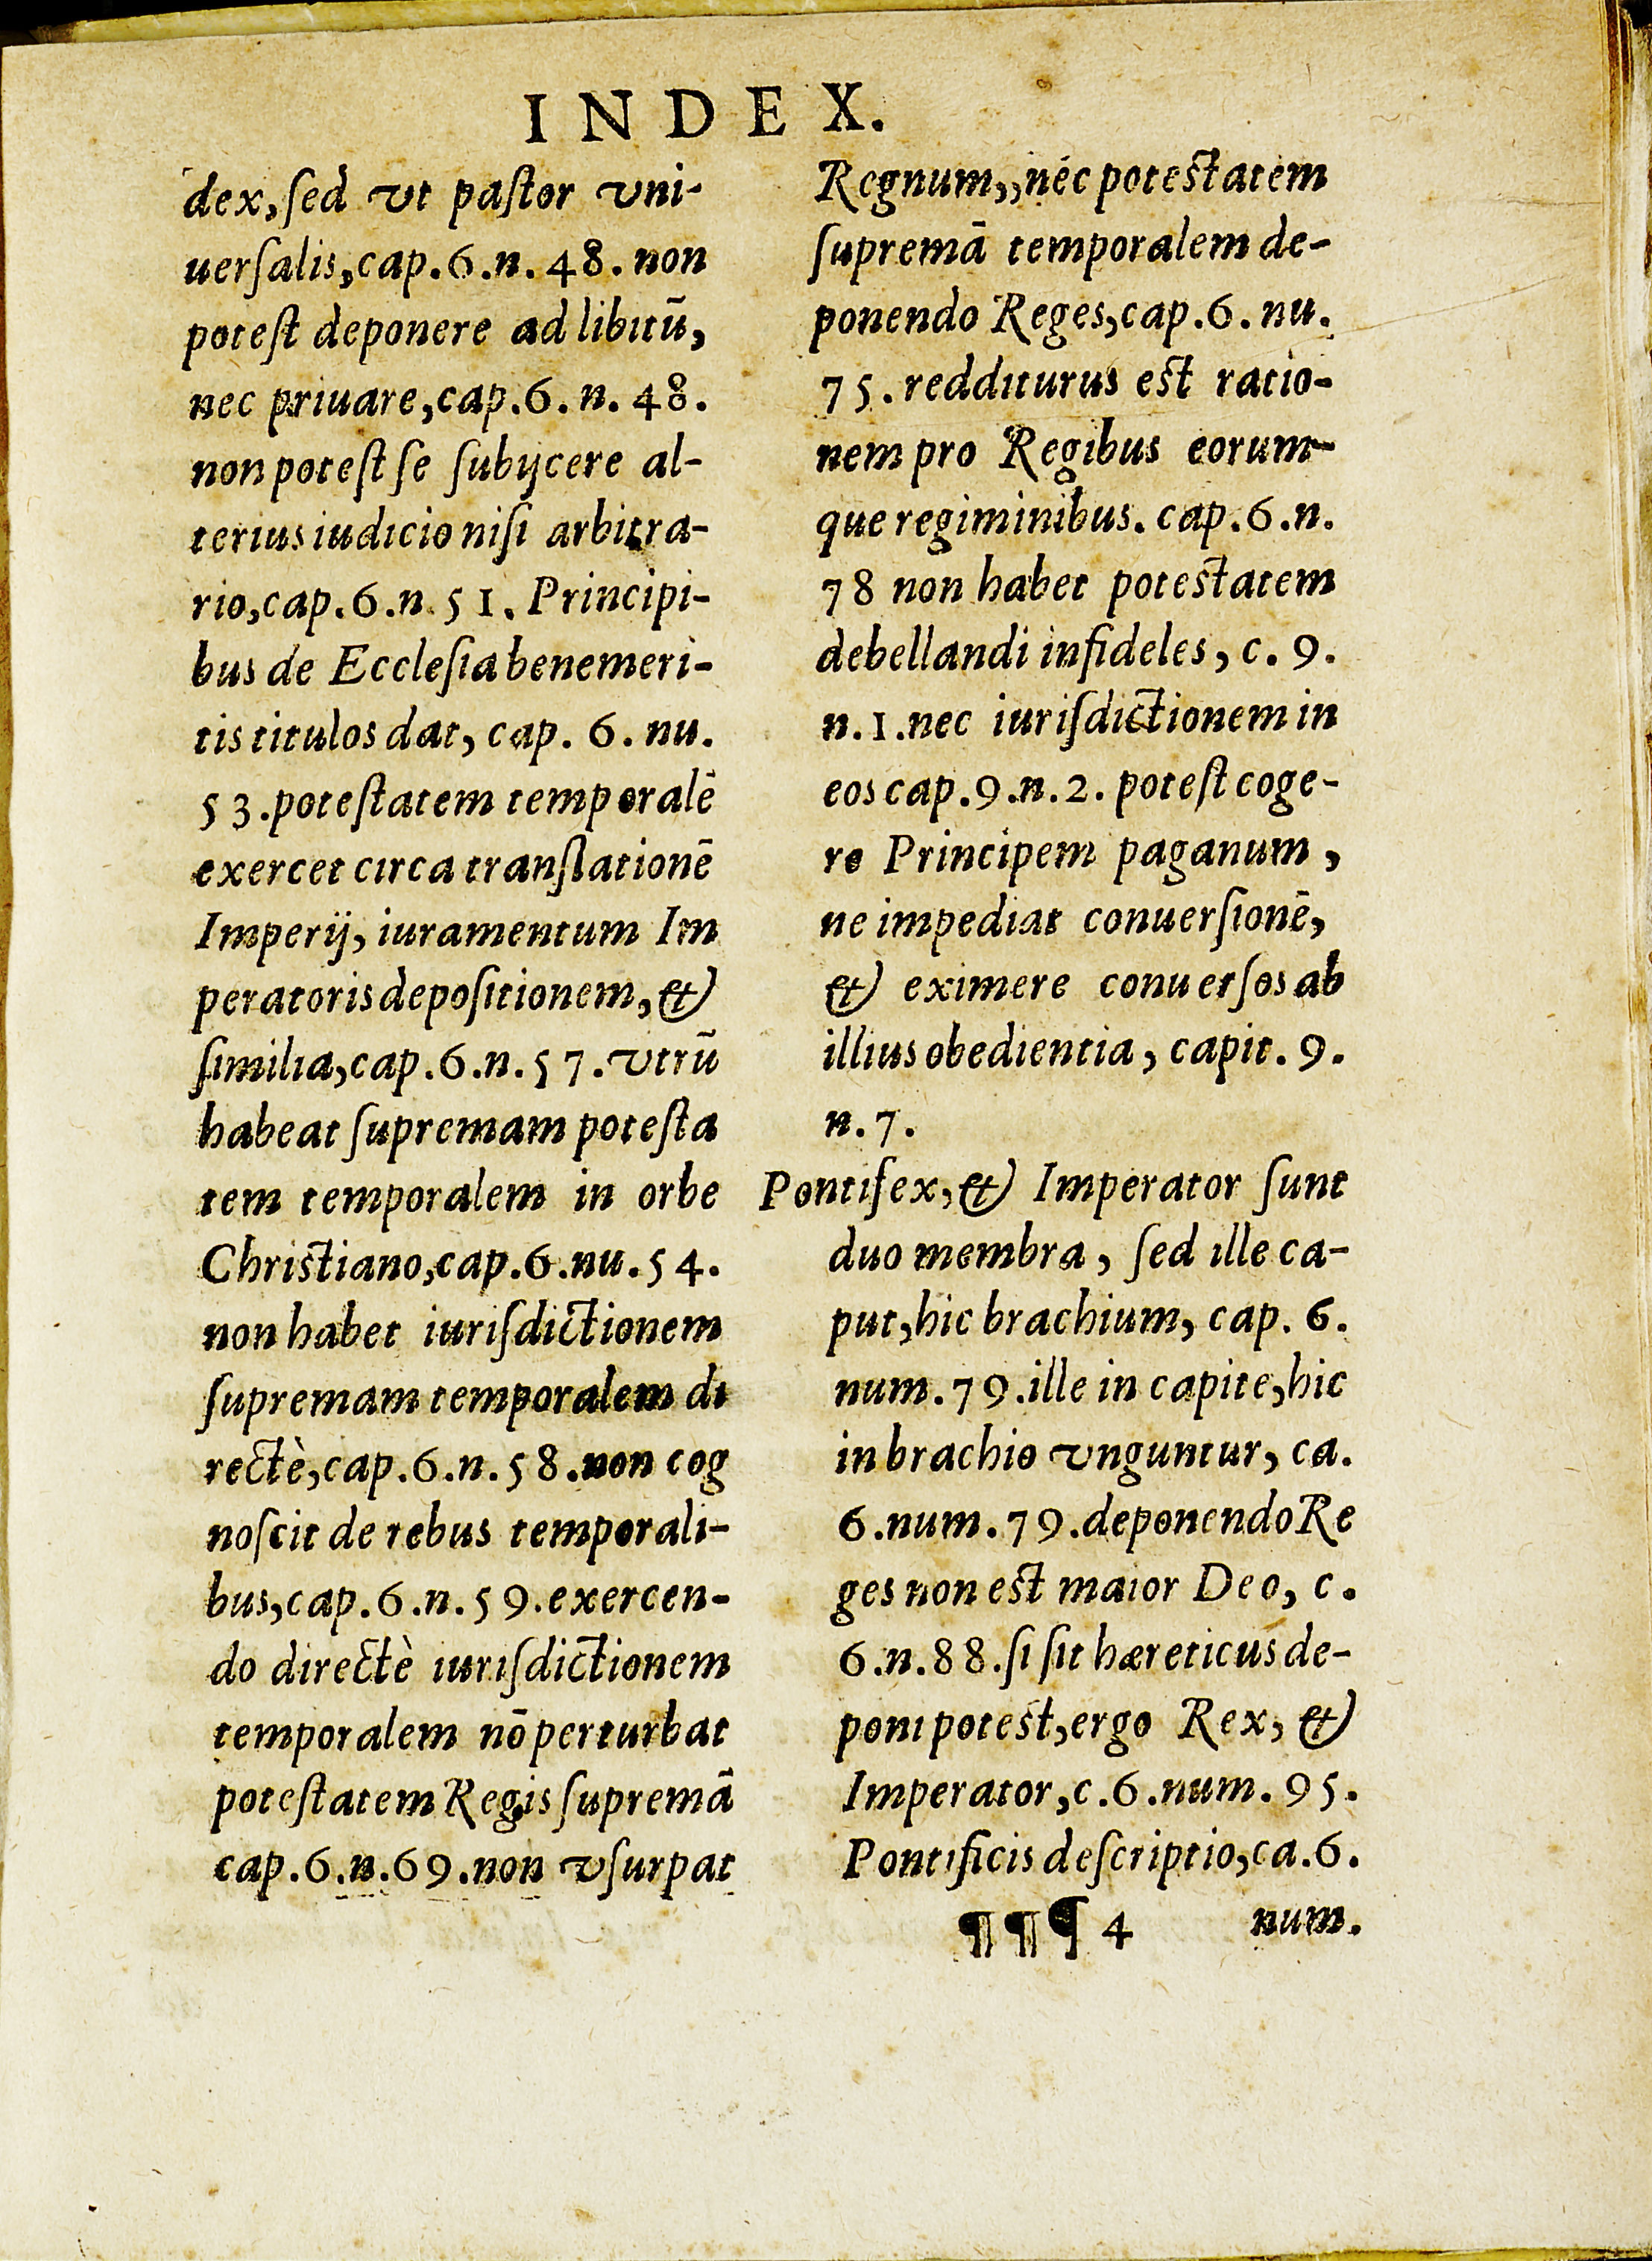 INDEX.
dex, ſed vt paſtor vni-
uerſalis, cap. 6. n. 48. non
poteſt deponere ad libitū,
nec priuare, cap. 6. n. 48.
non poteſt ſe ſubijcere al-
terius iudicio niſi arbitra-
rio, cap. 6. n. 51. Principi-
bus de Eccleſia benemeri-
tis titulos dat, cap. 6. nu.
53. poteſtatem temporalē
exercet circa tranſlationē
Imperij, iuramentum Im
peratoris depoſitionem, &
ſimilia, cap. 6. n. 57. vtrū
habeat ſupremam poteſta
tem temporalem in orbe
Chriſtiano, cap. 6. nu. 54.
non habet iuriſdictionem
ſupremam temporalem di
rectè, cap. 6. n. 58. non cog
noſcit de rebus temporali-
bus, cap. 6. n. 59. exercen-
do directè iuriſdictionem
temporalem nō perturbat
poteſtatem Regis ſupremā
cap. 6. n. 69. non vſurpat
Regnum,, néc poteſtatem
ſupremā temporalem de-
ponendo Reges, cap. 6. nu.
75. redditurus eſt ratio-
nem pro Regibus eorum-
que regiminibus. cap. 6. n.
78 non habet poteſtatem
debellandi infideles, c. 9.
n. 1. nec iuriſdictionem in
eos cap. 9. n. 2. poteſt coge-
re Principem paganum,
ne impediat conuerſionē,
& eximere conuerſos ab
illius obedientia, capit. 9.
n. 7.
Pontifex, & Imperator ſunt
duo membra, ſed ille ca-
put, hic brachium, cap. 6.
num. 79. ille in capite, hic
in brachio vnguntur, ca.
6. num. 79. deponendo Re
ges non eſt maior Deo, c.
6. n. 88. ſi ſit hæreticus de-
poni poteſt, ergo Rex, &
Imperator, c. 6. num. 95.
Pontificis deſcriptio, ca. 6.
¶¶¶ 4 num.